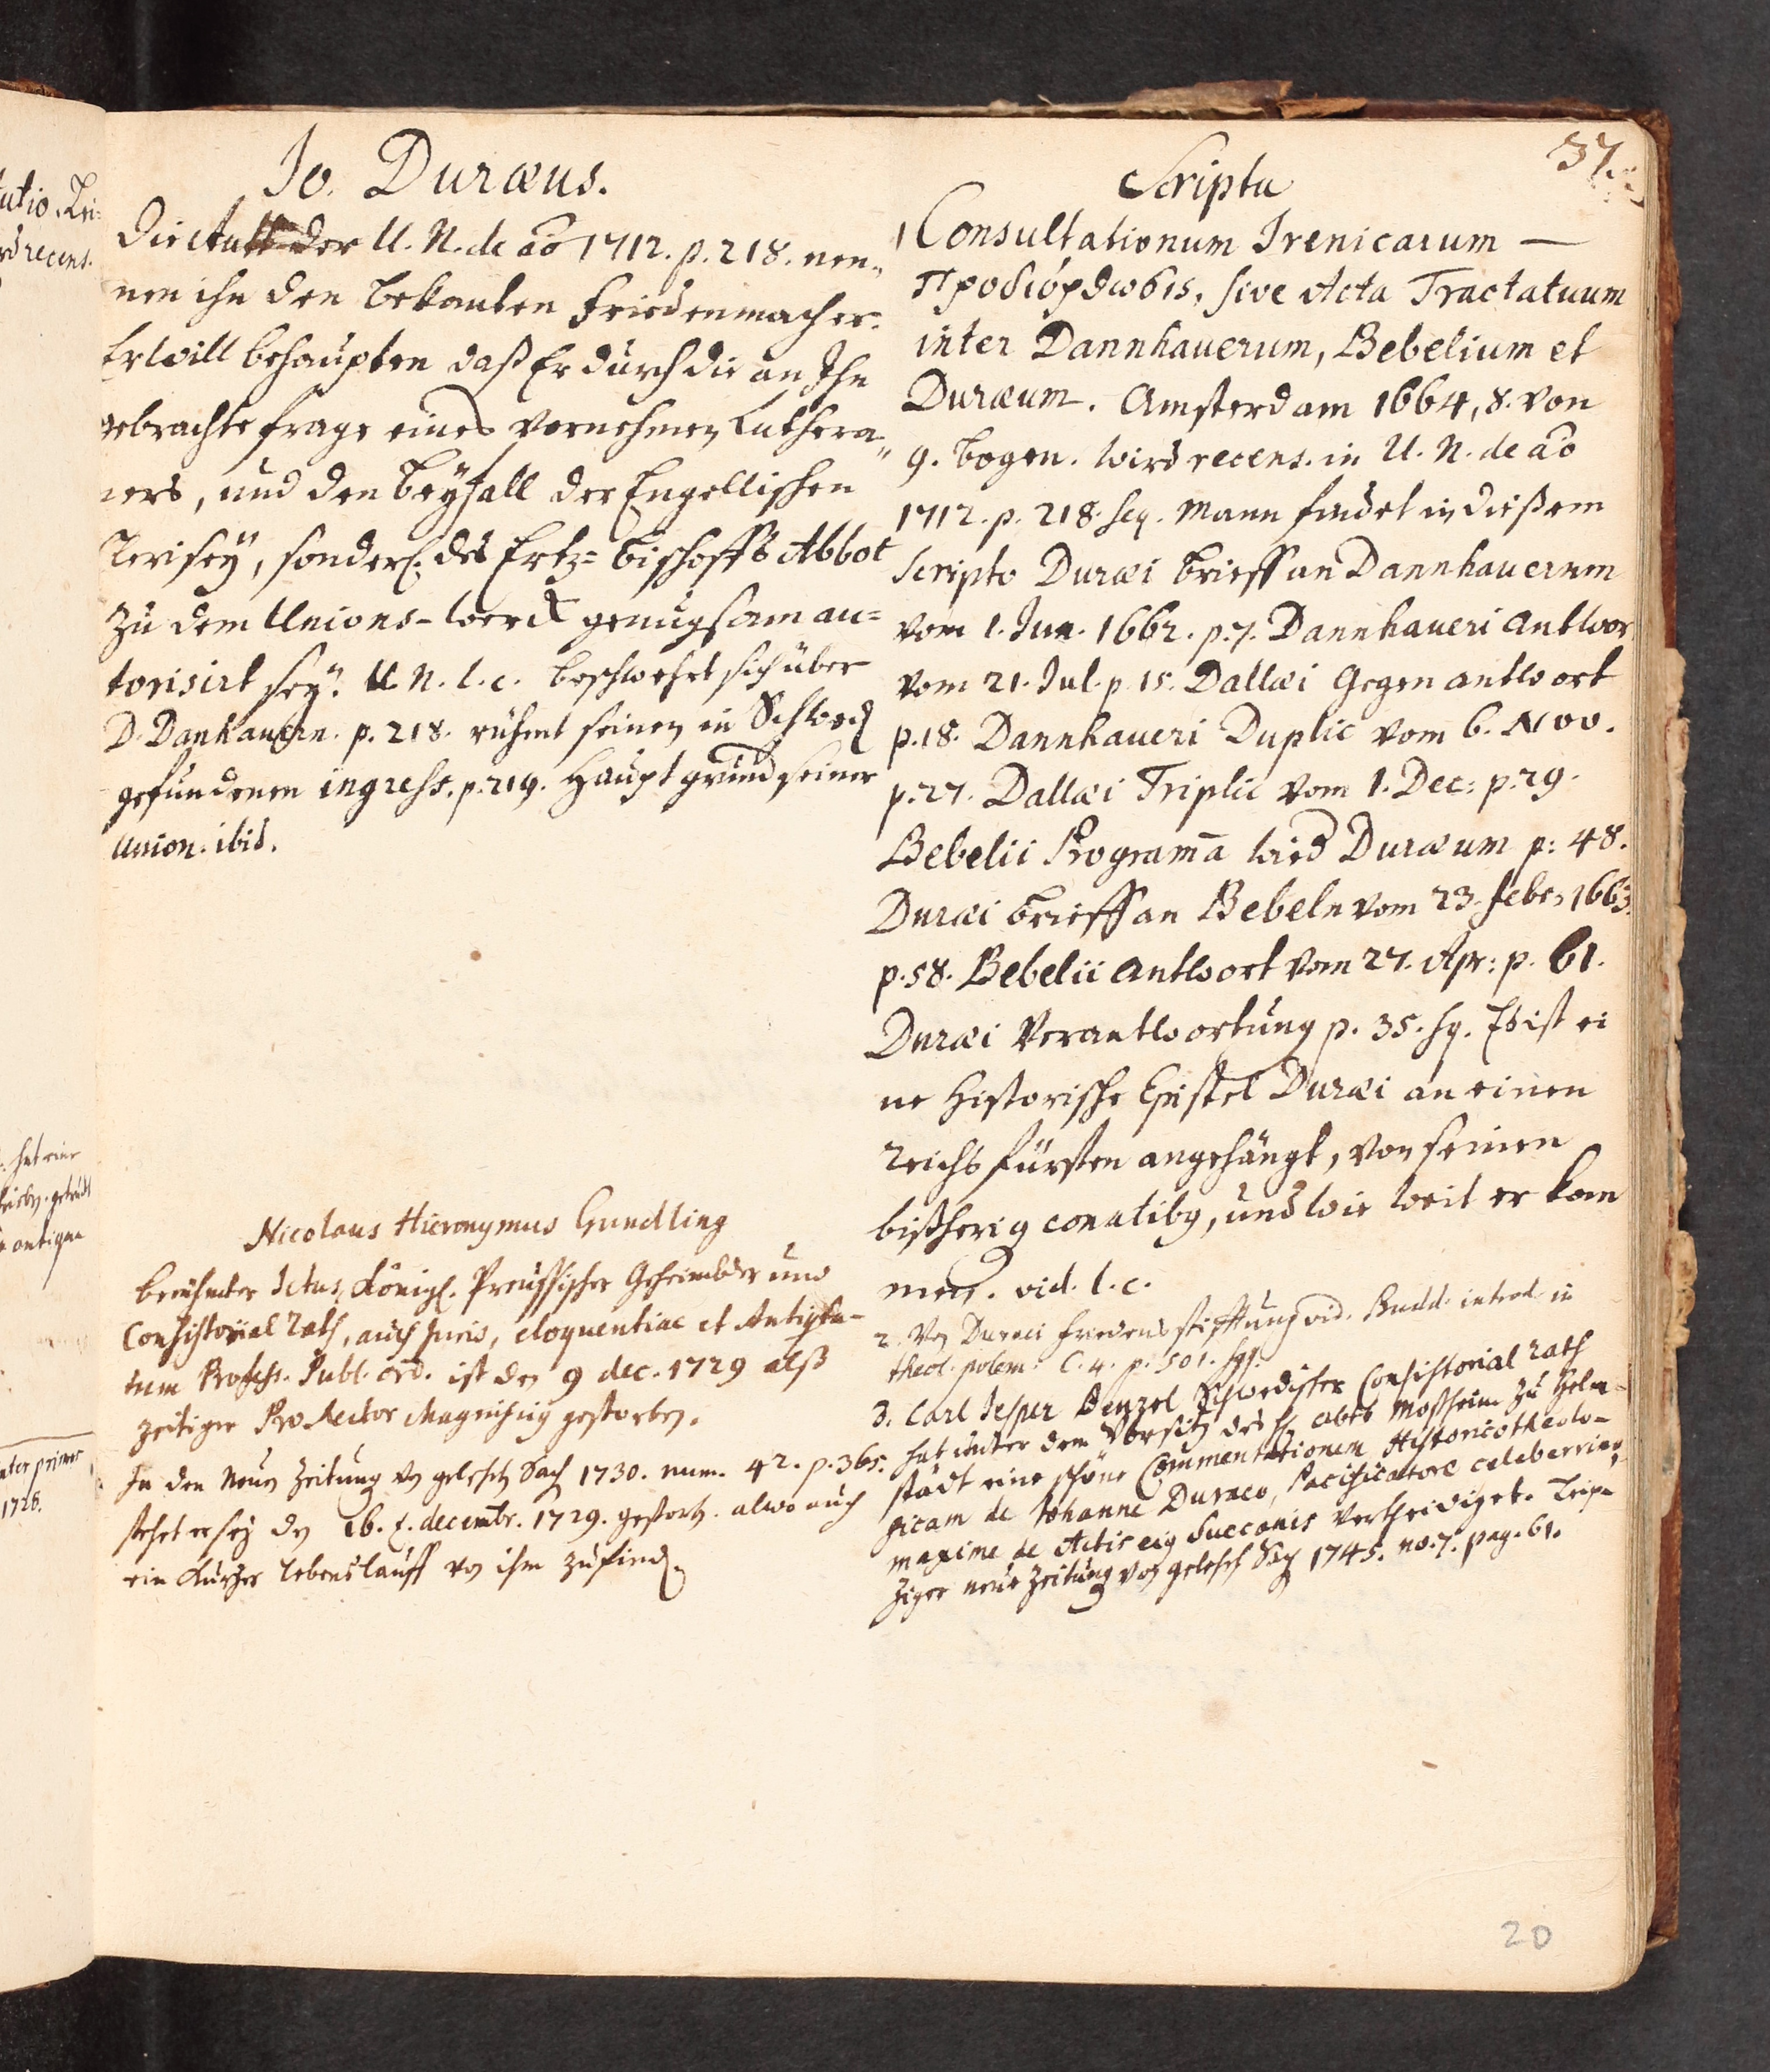 37.
Jo. Duræus.
Die Autt der U. N. de ao 1712. p. 218. nen„
nen ihn den bekanten Friedenmacher.
Er will behaupten daß Er durch die an Ihn
gebrachte frage eines vornehmen Luthera„
ners, und den beyfall der Engellischen
Clerisey, sonderl. des Ertz-Bischoffs Abbot
zu dem Unions-werck genugsam au=
torisirt sey. U. N. l. c. beschwehrt sich über
D. Dankauern. p. 218. rühmt seinen in Schwed
gefundenen ingress. p. 219. Hauptgrund seiner
Union. ibid.
Nicolaus Hieronymus Gundling
berühmter Ictus, Königl. Preussischer Geheimbder und
Consistorial Rath, auch Juris, eloquentiae et Antiqta-
tum Profess. Publ. ord. ist den 9 dec. 1729 alß
zeitiger ProRector Magnificus gestorben.
In den Neuen Zeitung von gelehrt Sach 1730. num. 42. p. 365.
stehet er sey den 16. decembr. 1729. gestorb. alwo auch
ein kurzer lebenslauff von ihm zu find.
Scripta
1 Consultationum Irenicarum —
Προδιόρθωσις, sive Acta Tractatuum
inter Dannhauerum, Bebelium et
Duræum. Amsterdam 1664, 8. von
9. bogen. wird recens. in U. N. de ao
1712. p. 218. seq. Mann findet in dießem
scripto Duræi brieff an Dannhauerum
vom 1. Jun. 1662. p. 7. Dannhaueri Antwor
vom 21. Jul. p. 15. Dallæi Gegenantwort
p. 18. Dannhaueri Duplic vom 6. Nov.
p. 27. Dallæi Triplic vom 1. Dec: p. 29.
Bebelii Programa wied Duræum p: 48.
Duræi brieff an Bebeln vom 23. Febr. 1663.
p. 58. Bebelii Antwort vom 27. Apr: p. 61.
Duræi Verantwortung p. 35. sq. Es ist ei
ne Historische Epistel Duræi an einen
Reichs fürsten angehängt, von seinen
bißherig conatibus, und wie weit er kom
men. vid. l. c.
2. Von Duraei Friedensstifftung vid. Budd. introd. in
theol. polem. C. 4. p. 501. sqq.
3. Carl Jesper Benzel Schwedischer Consistorial Rath
hat unter dem Vorsitz des H. Abts Moßheim zu Helm-
städt eine schöne Commentationem Historicotheolo-
gicam de Johanne Duraeo, Pacificatore celeberrimo,
maxime de Actis ejus Suecanis vertheidiget. Leip-
ziger neue Zeitung von gelehrt Sach 1745. no. 7. pag. 61.
20